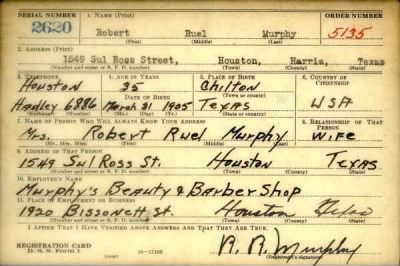 SERIAL NUMBER 1. NAME (Print) ORDER NUMBER
2620 Robert Ruel Murphy 5135
(First) (Middle) (Last)
2. ADDRESS (Print)
1549 Sul Ross Street, Houston, Harris, Texas
(Number and street or R. F. D. number) (Town) (County) (State)
3. TELEPHONE 4. AGE IN YEARS 5. PLACE OF BIRTH 6. COUNTRY OF CITIZENSHIP
Houston 35 Chilton
(Town or county)
Hadley 6886 March 31 1905 Texas USA
(Exchange) (Number) (Mo.) (Day) (Yr.) (State or country)
7. NAME OF PERSON WHO WILL ALWAYS KNOW YOUR ADDRESS 8. RELATIONSHIP OF THAT PERSON
Mrs. Robert Ruel Murphy Wife
(Mr., Mrs., Miss) (First) (Middle) (Last)
9. ADDRESS OF THAT PERSON
1549 Sul Ross St. Houston Texas
(Number and street or R. F. D. number) (Town) (County) (State)
10. EMPLOYER'S NAME
Murphy's Beauty & Barber Shop
11. PLACE OF EMPLOYMENT OR BUSINESS
1920 Bissonett St. Houston Texas
(Number and street or R. F. D. number) (Town) (County) (State)
I AFFIRM THAT I HAVE VERIFIED ABOVE ANSWERS AND THAT THEY ARE TRUE.
REGISTRATION CARD R. R. Murphy
D. S. S. Form 1 (Registrant's signature)